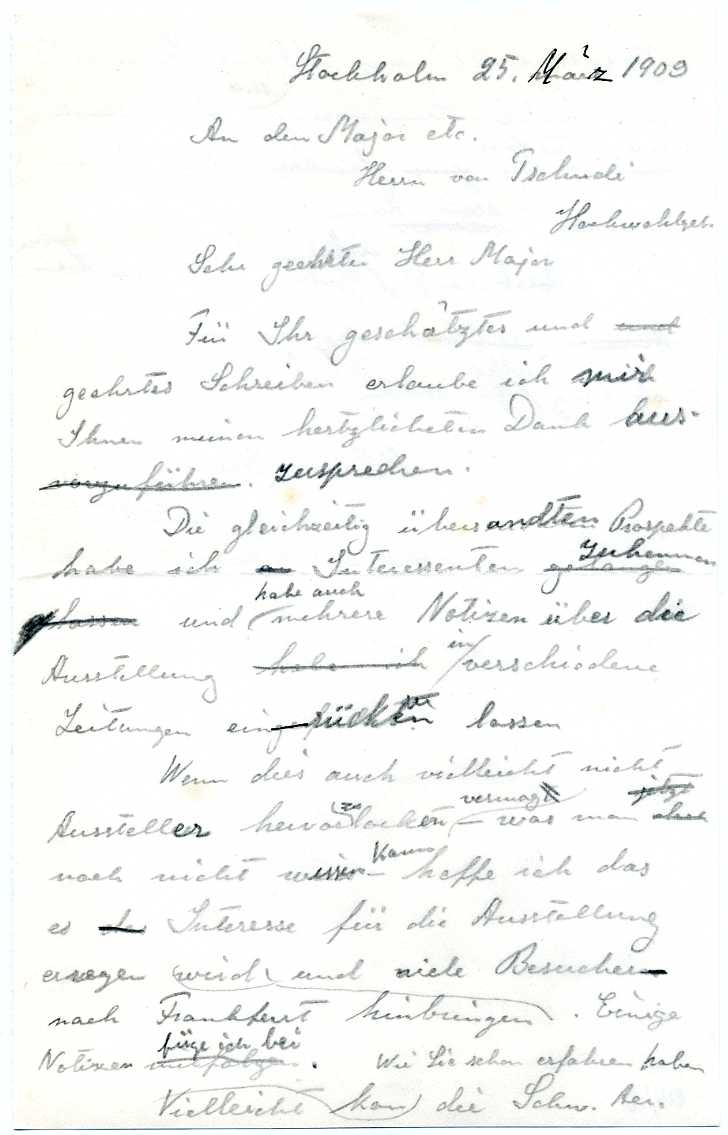 Stockholm 25. März 1909
An den Major etc.
Herrn von Tschudi
Hochwohlgeb.
Sehr geehrter Herr Major
Für Ihr geschätztes und und
geehrtes Schreiben erlaube ich mir
Ihnen meinen hertzlichsten Dank aus-
vorzuführen. zusprechen.
Die gleichzeitig übersandten Prospekte
habe ich an Interessenten gelangen zukommen
lassen und habe auch mehrere Notizen über die
Ausstellung habe ich in verschiedene
Zeitungen einrücken lassen
Wenn dies auch vielleicht nicht
Aussteller hervorzulocken vermag – was man jetzt
noch nicht wissen kann – hoffe ich das
es das Interesse für die Ausstellung
erregen wird und viele Besucher
nach Frankfurt hinbringen. Einige
Notizen mitfolgen füge ich bei. Wie Sie schon erfahren haben
Vielleicht kan die Schw. Aer.